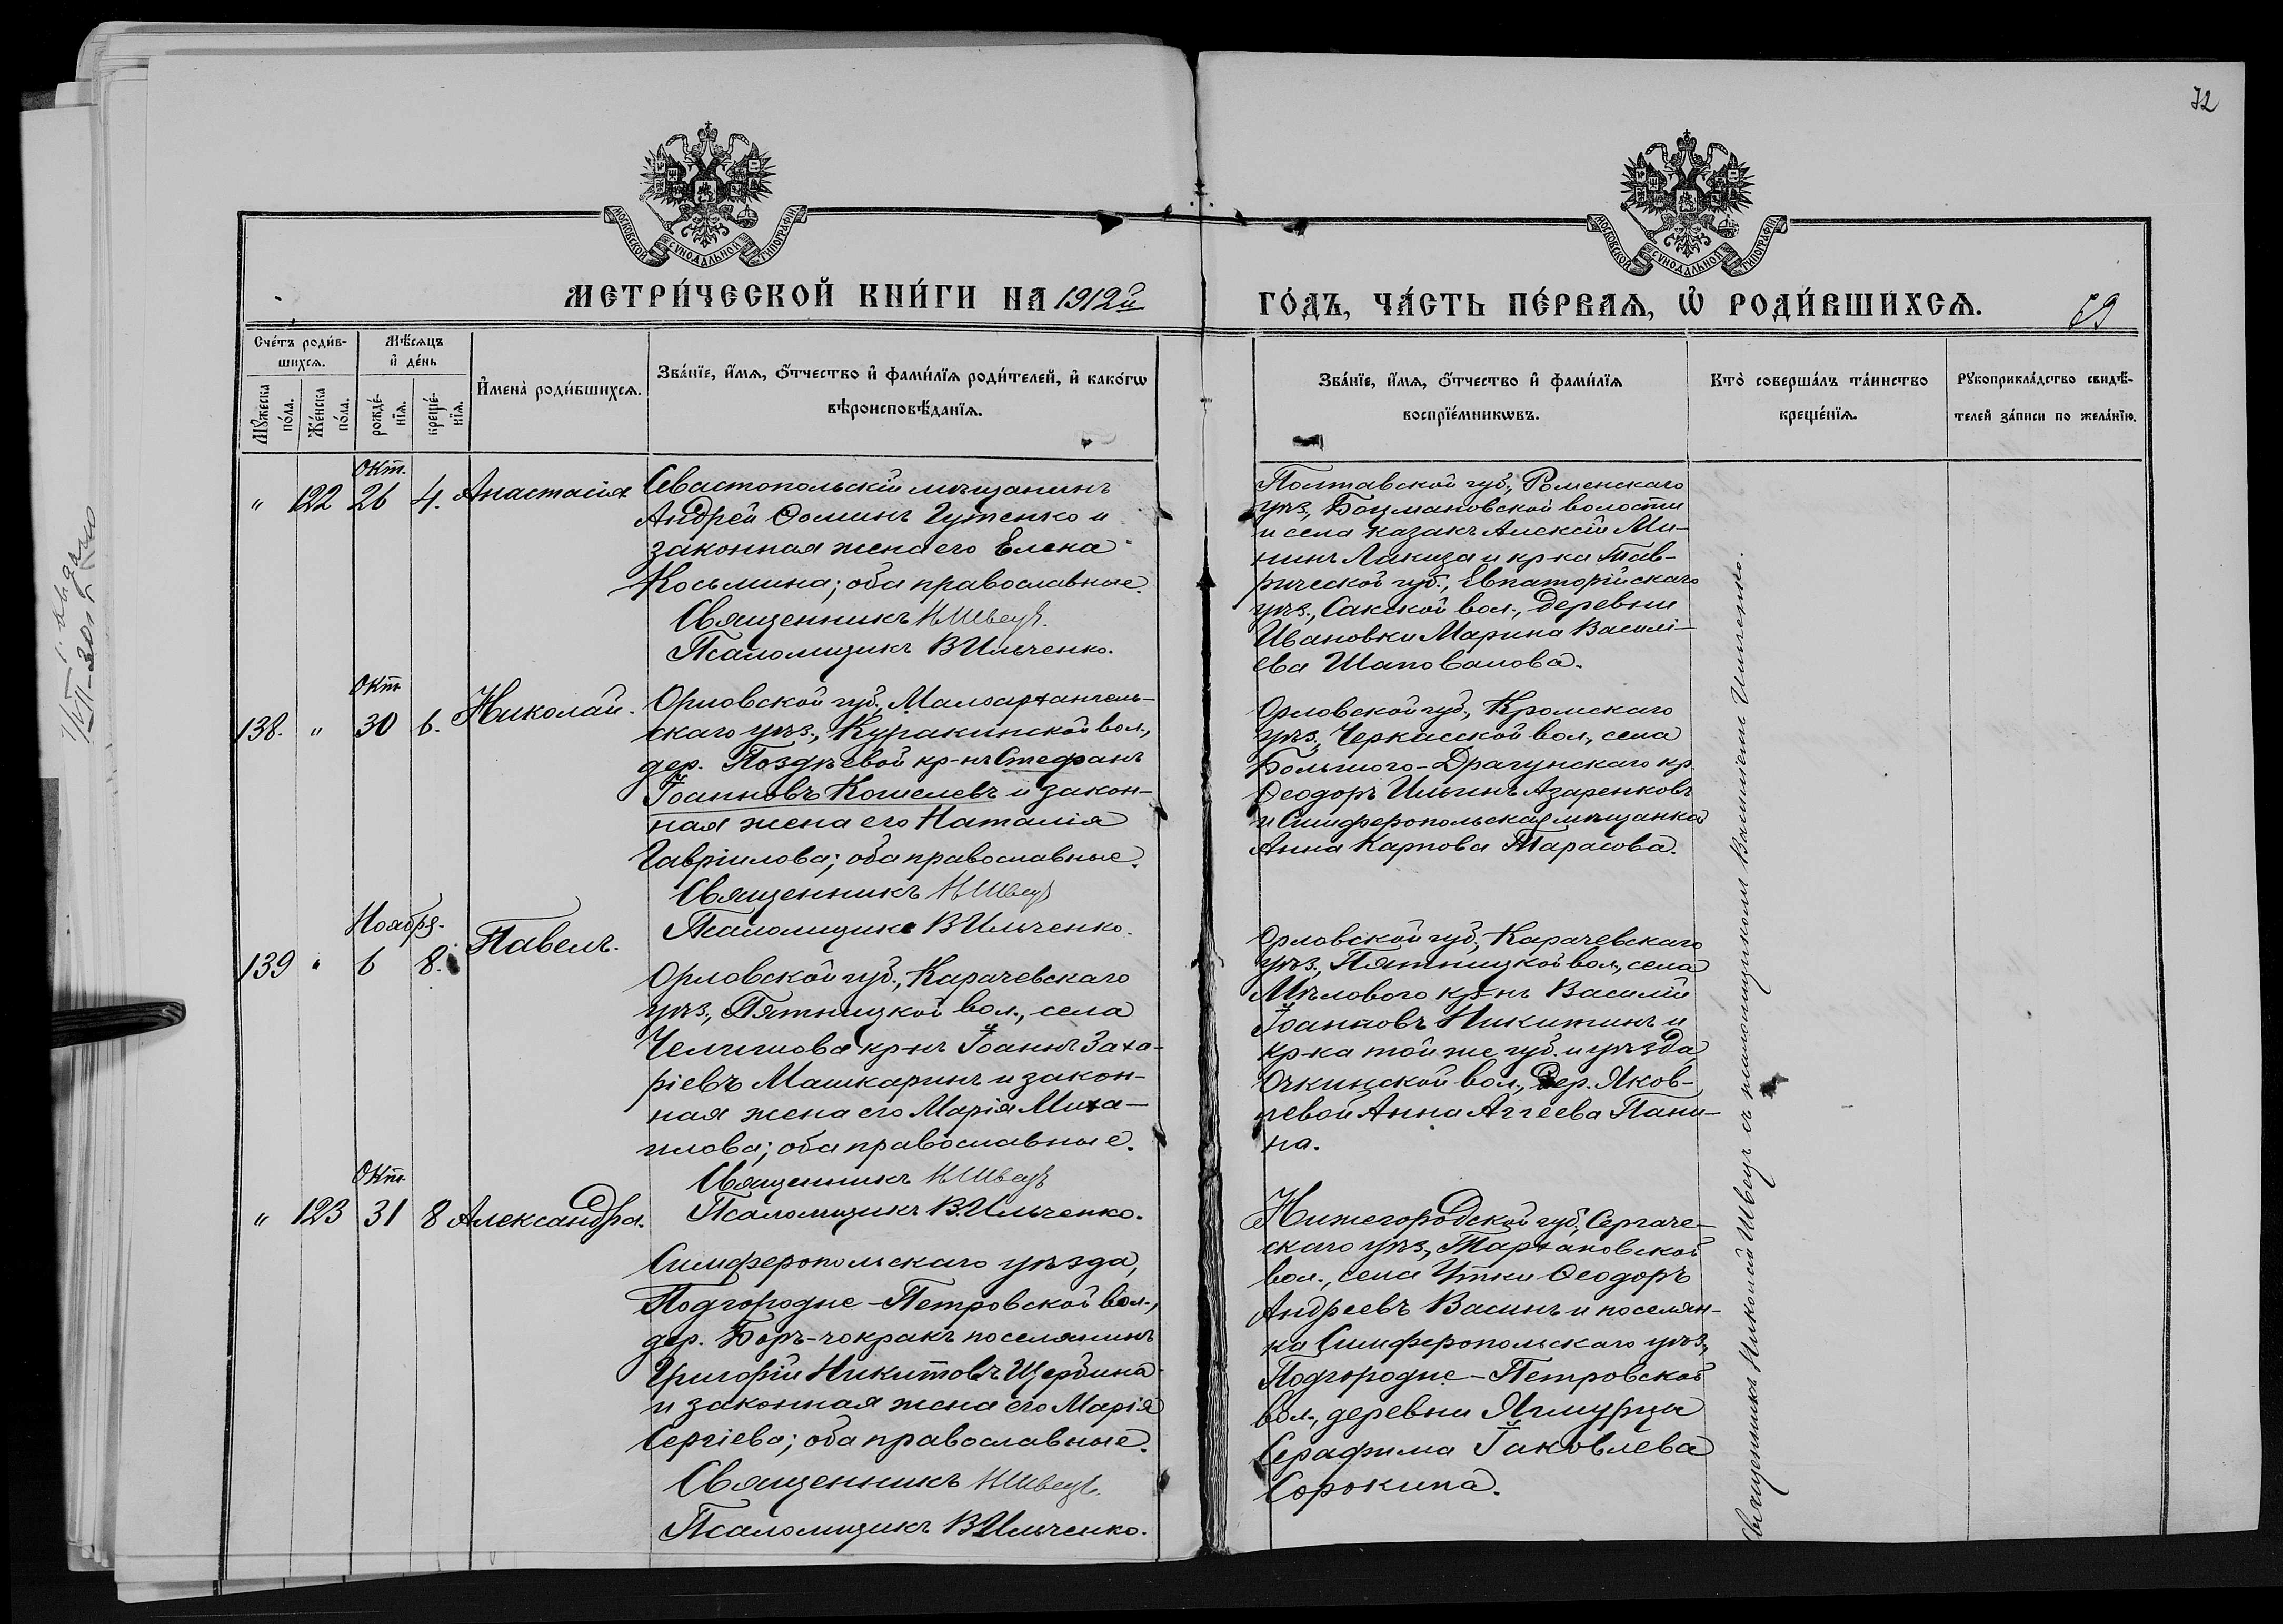 72
МОСКОВСКОЙ СУНОДАЛЬНОЙ ТИПОГРАФІИ
МОСКОВСКОЙ СУНОДАЛЬНОЙ ТИПОГРАФІИ
МЕТРИ́ЧЕСКОЙ КНИ́ГИ НА 1912й
ГО́ДЪ, ЧА́СТЬ ПЕ́РВАѦ, Ѡ РОДИ́ВШИХСѦ.
69
Сче́тъ роди́в-
шихсѧ.
Мꙋ́жеска по́ла.
Же́нска по́ла.
Мѣ́сяцъ
и҆ де́нь
рожде́-
нїѧ.
креще́-
нїѧ.
И҆мена̀ роди́вшихсѧ.
Зва́нїе, и҆́мѧ, ѻ҆́тчество и҆ фами́лїѧ роди́телей, и҆ како́гѡ
вѣроисповѣ́данїѧ.
Зва́нїе, и҆́мѧ, ѻ҆́тчество и҆ фами́лїѧ
воспрїе́мникѡвъ.
Кто̀ соверша́лъ та́инство
креще́нїѧ.
Рꙋкоприкла́дство свидѣ́-
телей за́писи по жела́нїю.
Окт.
" 122 26 4. Анастасія
Севастопольскій мѣщанинъ
Андрей Ѳоминъ Гутенко и
законная жена его Елена
Косьмина; оба православные.
Священникъ Н Швецъ.
Псаломщикъ В Ильченко.
Полтавской губ., Роменскаго
уѣз., Бацмановской волости
и села казакъ Алексій Ми-
нинъ Лакиза и кр-ка Тав-
рической губ., Евпаторійскаго
уѣз., Сакской вол., деревни
Ивановки Марина Василі-
ева Шаповалова.
Окт.
138. " 30 6. Николай.
Орловской губ., Малоархангель-
скаго уѣз., Куракинской вол.,
дер. Поздѣевой кр-нъ Стефанъ
Іоанновъ Кошелевъ и закон-
ная жена его Наталія
Гавріилова; оба православные.
Священникъ Н Швецъ
Псаломщикъ В Ильченко.
Орловской губ., Кромскаго
уѣз., Черкасской вол., села
Большого-Драгунскаго кр.
Ѳеодоръ Ильинъ Азаренковъ
и Симферопольская мѣщанка
Анна Карпова Тарасова.
Ноября.
139 " 6 8. Павелъ.
Орловской губ., Карачевскаго
уѣз., Пятницкой вол., села
Челищова кр-нъ Іоаннъ Заха-
ріевъ Машкаринъ и закон-
ная жена его Марія Миха-
илова; оба православные.
Священникъ Н Швецъ
Псаломщикъ В. Ильченко.
Орловской губ., Карачевскаго
уѣз., Пятницкой вол., села
Мѣлового кр-нъ Василій
Іоанновъ Никитинъ и
кр-ка той же губ. и уѣзда
Очкинской вол., дер. Яков-
левой Анна Аггеева Пани-
на.
Окт.
" 123 31 8 Александра.
Симферопольскаго уѣзда,
Подгородне-Петровской вол.,
дер. Боръ-чокракъ поселянинъ
Григорій Никитовъ Щербина
и законная жена его Марія
Сергіева; оба православные.
Священникъ Н Швецъ.
Псаломщикъ В Ильченко.
Нижегородской губ., Сергаче-
скаго уѣз., Тархановской
вол., села Утки Ѳеодоръ
Андреевъ Васинъ и поселян-
ка Симферопольскаго уѣз.,
Подгородне-Петровской
вол., деревни
Серафима Іаковлева
Сорокина.
Священникъ Николай Швецъ съ псаломщикомъ Василіемъ Ильченко.